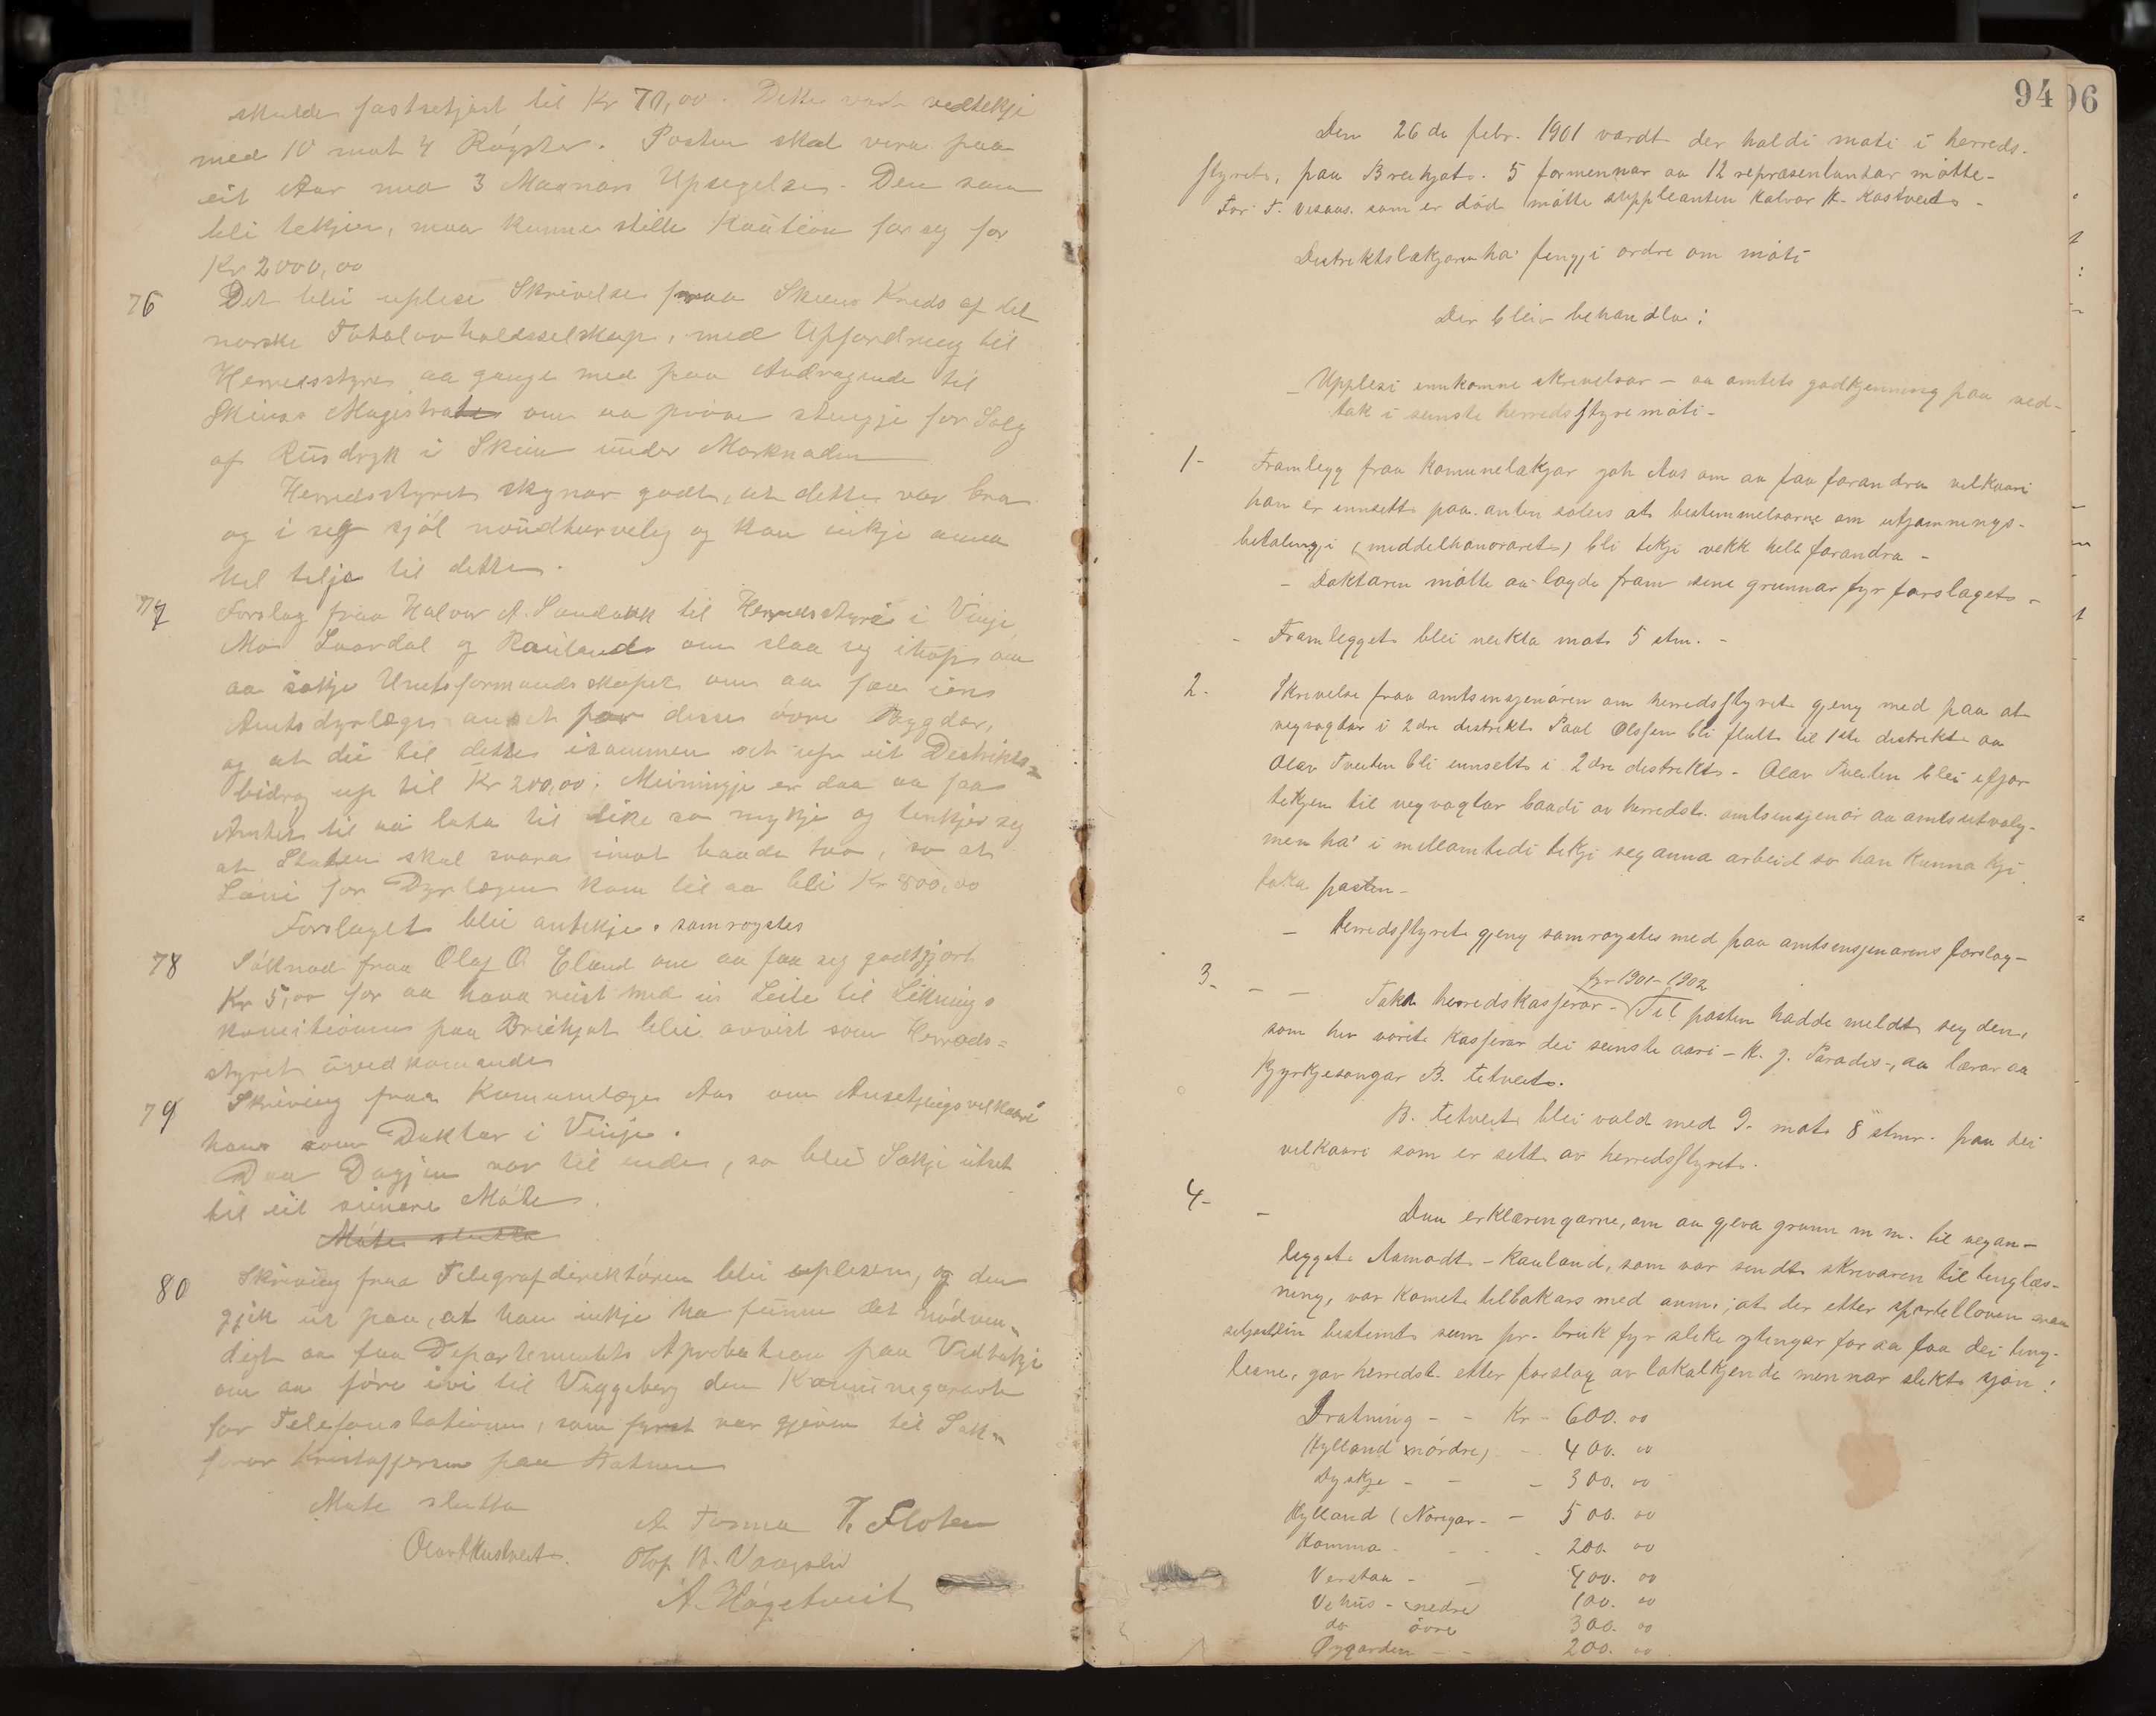 skulde fastsetjast til Kr 70,00. Dette vart vedtekje
med 10 mot 4 Røyster. Posten skal vera paa
eit Aar med 3 Maanars Upsegelse. Den som
bli tekjen, maa kunne stille Kaution for seg for
Kr 2000,00
76 Det blei uplese Skrivelse fraa Skiens Kreds af det
norske Totalavholdsselskap, med Upfordring til
Herredsstyre aa gange med paa Andragende til
Skiens Magistrat om aa prøve stengje for Salg
af Rusdryk i Skien under Marknaden
Herredsstyret skynar godt, at dette var bra
og i seg sjøl nøudturveleg og kan inkje anna
hel telja til dette.
77 Forslag fraa Halvor A. Sandokk til Herredsstyre i Vinje,
Mo Laardal og Rauland om slaa seg ihop om
aa søkje Amtsformandskapet om aa faa ein
Amtsdyrlæge ansat for desse øvre Bygdar,
og at dei til dette isammen set up eit Destrikts-
bidrag up til Kr 200,00. Meiningji er daa aa faa
Amtet til aa lata til like so mykje og tenkjer seg
at Staten skal svara imot baade two, so at
Løni for Dyrlægen kom til aa bli Kr 800,00
Forslaget blei antekje. samrøystes
78 Søknad fraa Olaf O. Eland om aa faa seg godtgjort
Kr 5,00 for aa hava reist med ei Leite til Liknings
komitionen paa Breikjot blei avvist som Herreds-
styret uvedkomande
79 Skriving fraa Komunelæge Aas om Ansetjingsvilkaari
hans som Doktar i Vinje.
Daa Dagjen var til ende, so blei Sakje utset
til eit seinare Møte.
Møte slutta
80 Skriving fraa Telegrafdirektøren blei uplesen, og den
gjik ut paa, at han inkje ha funne det nødven-
digt aa faa Departementets Aprobation paa Vedtakje
om aa føre ivi til Vaggeberg den Komunegaranti
for Telefonstationen, som fyrst var gjeven til Sak-
førar Kristoffersen paa
Møte slutta
A. Tonna T. Floten
Olav Kostveit. Olaf B. Vaagslid
A. Høgetveit
94
96
Den 26de febr. 1901 vardt der haldi møti i herreds-
styret, paa Breikjot. 5 formennar aa 12 repræsentantar møtte-
For T. Vesaas. som er død møtte suppleanten Halvor K. Kostveit -
Distriktslækjaren ha' fengji ordre om møti
Der bleiv behandla:
- Upplesi innkomne skrivelsar - aa amtets godkjenning paa ved-
tak i seinste herredsstyremøti -
1- Framlegg fraa komunelækjar Joh Aas om aa faa forandra vilkaari
han er innsett paa. anten soleis at bestemmelsarne om utjamnings-
betalingji (middelhonoraret) bli tekji vekk hell forandra -
- Doktaren møtte aa lagde fram sine grunnar fyr forslaget -
- Framlegget blei nekta mot 5 stm. -
2. Skrivelse fraa amtsinsjenøren om herredsstyret gjeng med paa at
vegvaqtar i 2dre distrikt Paal Olssen bli flutt til 1ste distrikt aa
Olav Tveiten bli innsett i 2dre distrikt - Olav Tveiten blei ifjor
tekjen til vegvaqtar baadi av herredst. amtsinsjenør aa amtsutvalg-
men ha' i millomtidi tekji seg anna arbeid so han kunna kji
taka posten -
- Herredsstyret gjeng samrøystes med paa amtsinsjenørens forslag -
3- - - Taka herredskasserar - fyr 1901-1902 Til posten hadde meldt seg den,
som hev vorit kasserar dei seinste aari - K. J. Paradis -, aa lærar aa
kyrkjesongar B. Tetveit.
B. Tetveit blei vald med 9. mot 8 stmr. paa dei
vilkaari som er sett av herredsstyret.
4- - Daa erklæringarne, om aa gjeva grunn m m. til vegan-
legget Aamodt - Rauland, som var sendt skrivaren til tinglæs-
ning, var komet tilbakars med anm.; at der etter sportelloven maa
setjast ein bestemt sum pr. bruk fyr slike ytingar for aa faa dei ting-
lesne, gav herredst. etter forslag av lokalkjende mennar slikt sjøn:
Bratning - - Kr - 600. 00
Hylland (nørdre) - - 400. 00
Dyskje - - - 300. 00
Hylland (Norigar - - 500. 00
Homma - - - 200. 00
Verstau - - 400. 00
Vehus - nedre 100. 00
do øvre 300. 00
Øygarden - - 200. 00